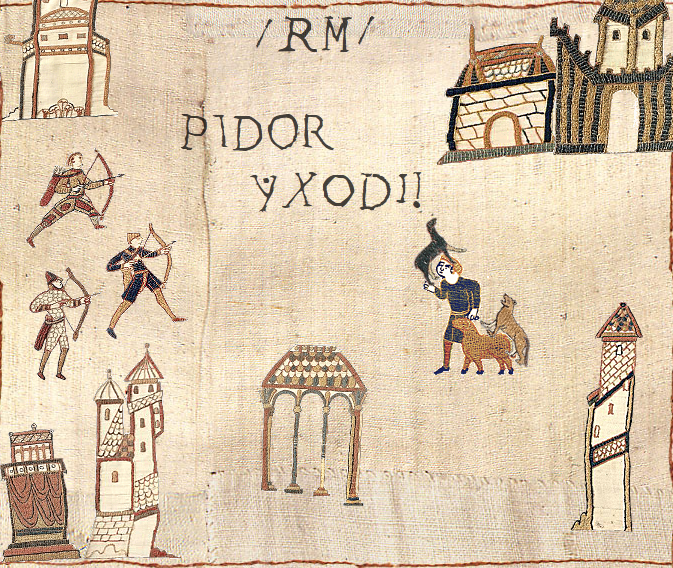 /RM/
PIDOR
YXODI!